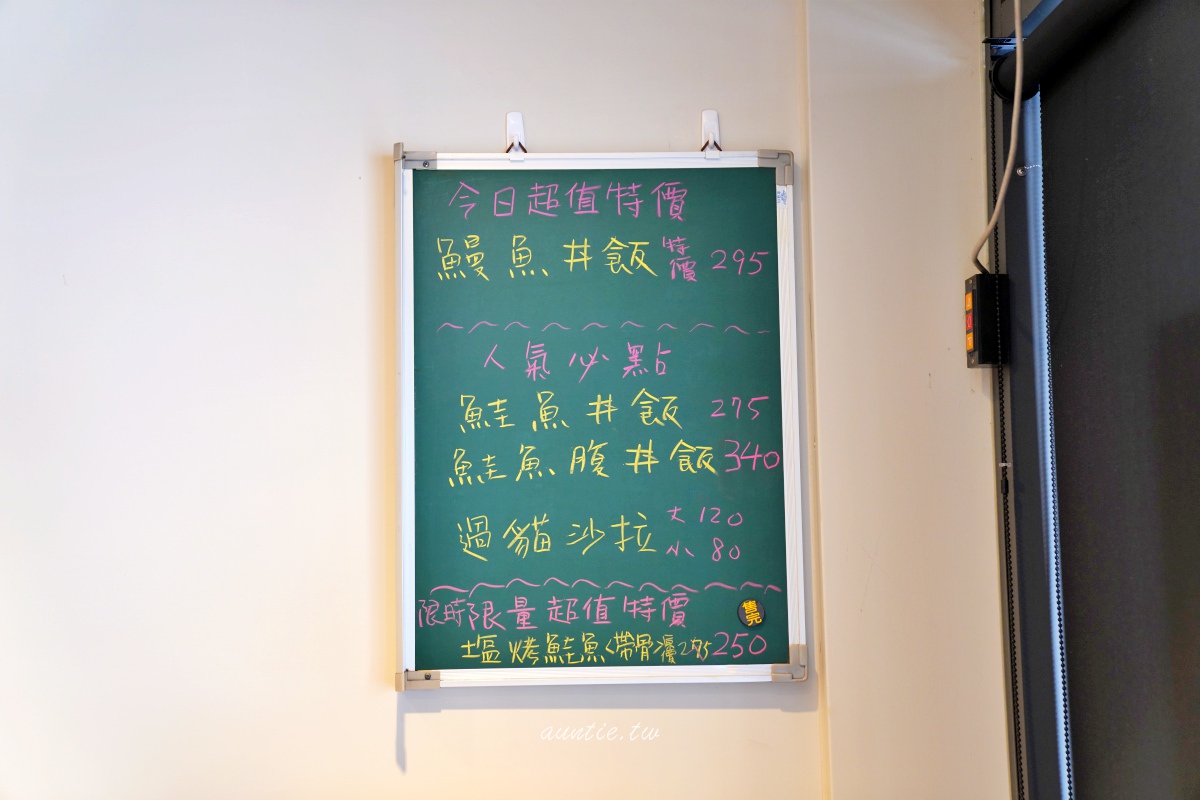 今日超值特價
鰻魚丼飯 特價 295
人氣必點
鮭魚丼飯 275
鮭魚腹丼飯 340
過貓沙拉 大 120
小 80
限時限量超值特價 售完
塩烤鮭魚<帶骨> 250
auntie.tw